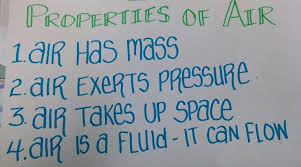 PROPERTIES OF AIR
1. aIR Has Mass
2. aIR ExERTS PRESSURE
3. aIR TakEs UP SpacE
4. aIR Is a FluId - IT caN FLOW